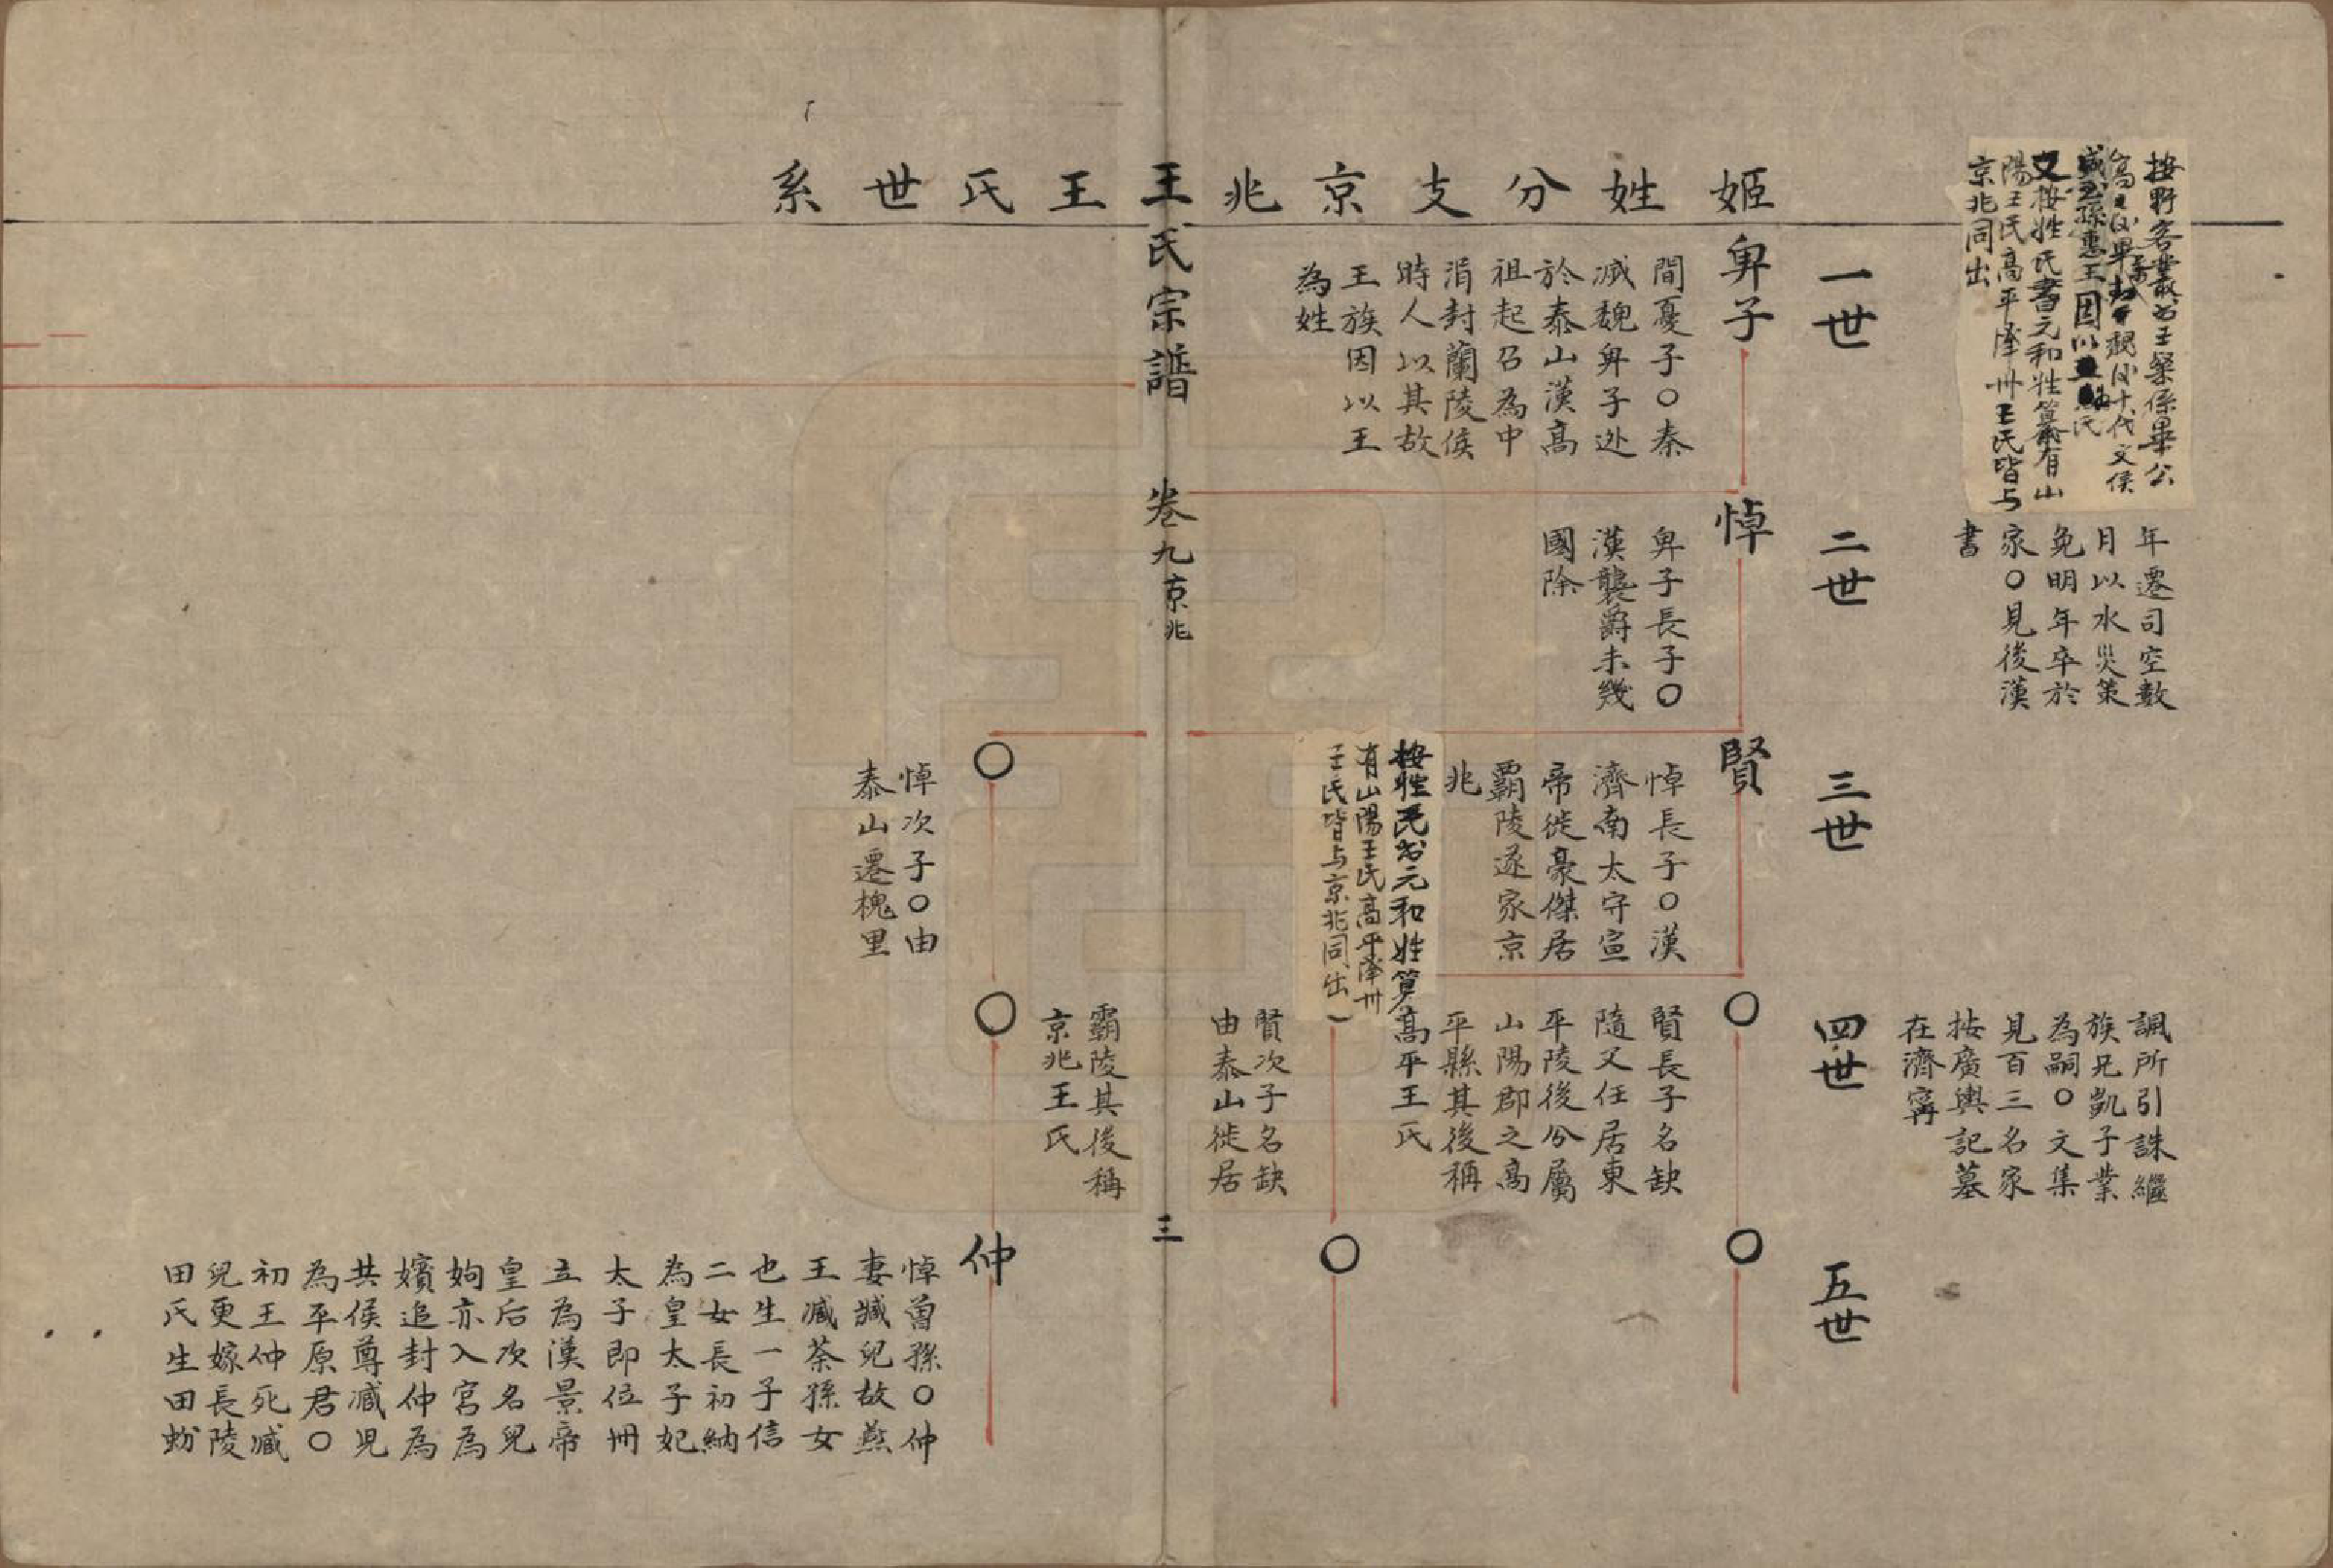 姬姓分支京兆王王氏世系
王氏宗譜
卷九京兆
三
按野客叢書王粲係畢公
高之後畢萬封魏後十代文侯
盛至孫惠王因以王為氏
又按姓氏書元和姓纂有山
陽王氏高平澤州王氏皆與
京兆同出
年遷司空數
月以水災策
免明年卒於
家○見後漢
書
諷所引誅繼
族兄凱子業
為嗣○文集
見百三名家
按廣輿記墓
在濟寧
一世
二世
三世
四世
五世
卑子
間憂子○秦
滅魏卑子迯
於泰山漢高
祖起召為中
涓封蘭陵侯
時人以其故
王族因以王
為姓
悼
卑子長子○
漢襲爵未幾
國除
賢
悼長子○漢
濟南太守宣
帝徙豪傑居
霸陵遂家京
兆
按姓氏書元和姓纂
有山陽王氏高平澤州
王氏皆与京兆同出
○
賢長子名缺
隨父任居東
平陵後分屬
山陽郡之高
平縣其後稱
高平王氏
○
賢次子名缺
由泰山徙居
霸陵其後稱
京兆王氏
○
○
悼次子○由
泰山遷槐里
○
○
仲
悼曾孫○仲
妻臧兒故燕
王臧荼孫女
也生一子信
二女長初納
為皇太子妃
太子即位冊
立為漢景帝
皇后次名兒
姁亦入宮為
嬪追封仲為
共侯尊臧兒
為平原君○
初王仲死臧
兒更嫁長陵
田氏生田蚡